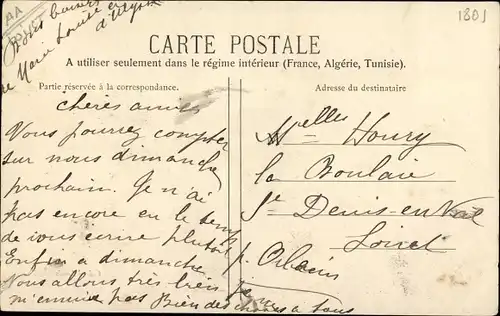 AA
Bons baisers
de Marie Louise et
d'Ulysse
1801
CARTE POSTALE
A utiliser seulement dans le régime intérieur (France, Algérie, Tunisie).
Partie réservée à la correspondance.
Adresse du destinataire
chères amies
Vous pourrez compter
sur nous dimanche
prochain. Je n'ai
pas encore eu le temps
de vous écrire plutôt
Enfin a dimanche
Nous allons très bien
m'ennuie pas Bien des choses a tous
Melles Houry
la Boulaie
St Denis-en-Val
Loiret
p. Orléans